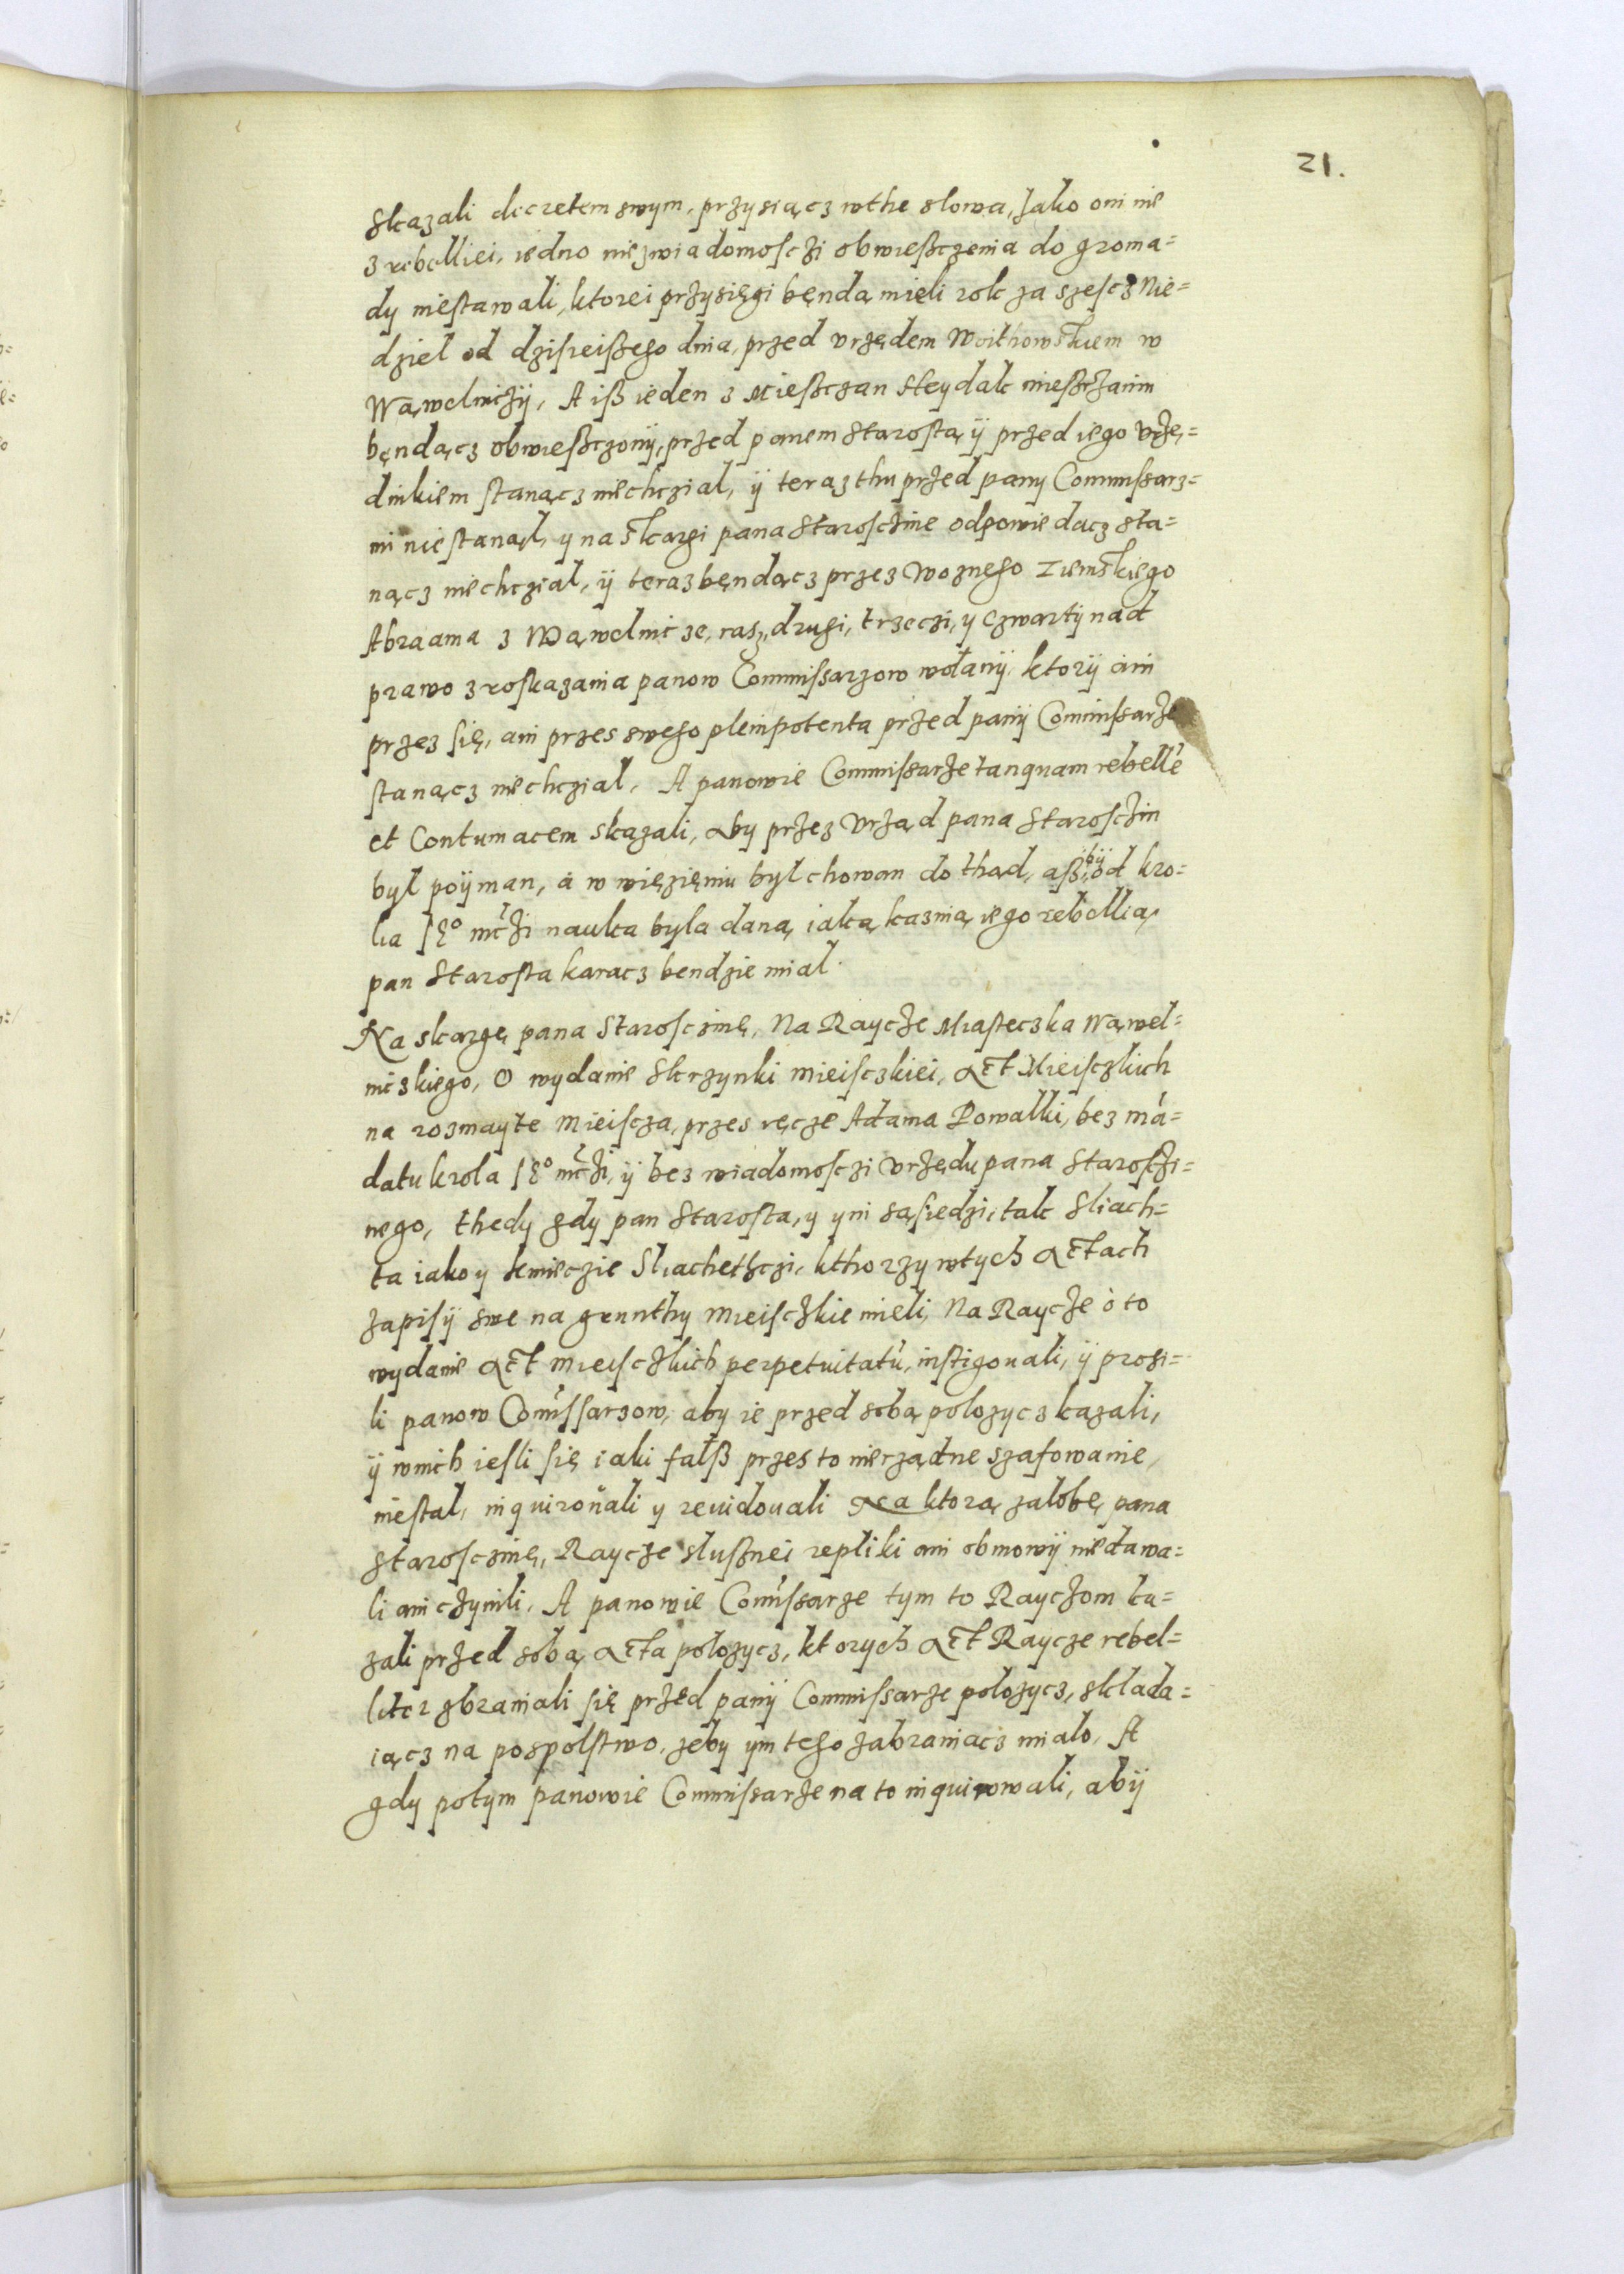 21.
Skazali dicretem swym, przysiącz wthe słowa, Jako oni nie
z rebelliei, iedno niezwiadomosczi obwießczenia do groma=
dy niestawali, ktorei przysięgi bęndą mieli rok za szescz Nie=
dziel od dzisieißego dnia, przed vrzędem Woithowskiem w
Wąwelniczÿ, A iß ieden z Mießczan Steydak mießczanin
bęndącz obwießczonÿ, przed panem Starostą ÿ przed iego vrzę=
dnikiem stanącz niechczial, ÿ teraz thu przed pany Commissarz=
mi nie stanął, y na skargi pana Starosczine odpowiedacz sta=
nącz niechczial, ÿ teraz bęndącz przez Woznego Ziemskiego
Abraama z Wąwelnicze, raz, drugi, trzeczi, y czwarty nad
prawo z roskazania panow Commissarzow wołanÿ, ktorÿ ani
przez się, ani przes swego plenipotenta przed panÿ Commissarze
stanącz niechczial, A panowie Commissarze tanquam rebelle
et Contumacem skazali, aby przez Vrząd pana Starosczin
był poÿman, a w więzieniu był chowan do thąd, aß bÿ od kro=
lia Jeº mczi nauka była daną, iaką kaznią, iego rebellią,
pan Starosta karacz bendzie miał.
Na skargę pana Starosczinę, Na Raycze Miasteczka Wąwel=
niczkiego, O wydanie Skrzynki mieisczkiei, Akt Mieisczkich
na rozmayte mieiscza, przes ręcze Adama Powałki, bez mā=
datu krola Jeº mczi, ÿ bez wiadomosczi vrzędu pana Starosczi=
nego, thedy gdy pan Starosta, y yni sąsiedzi, tak Sliach=
ta iako y kmieczie Sliachethczi, kthorzy wtych Aktach
zapisÿ swe na grunthy mieisczkie mieli, Na Raycze o to
wydanie Akt mieisczkich perpetuitatū, instigouali, ÿ prosi=
li panow Comissarzow, aby ie przed sobą położycz kazali,
ÿ wnich iesli się iaki fałß przes to nierządne szafowanie,
niestal, inquirouali y reuidouali Na ktorą załobę pana
Starosczinę, Raycze słußnei repliki ani obmowÿ niedawa=
li ani czynili, A panowie Comissarze tym to Rayczom ka=
zali przed sobą Akta położycz, ktorych Akt Raycze rebel=
liter zbraniali się przed panÿ Commissarze położycz, składa=
iącz na pospolstwo, żeby ym tego zabraniacz miało, A
gdy potym panowie Commissarze na to inquirowali, abÿ